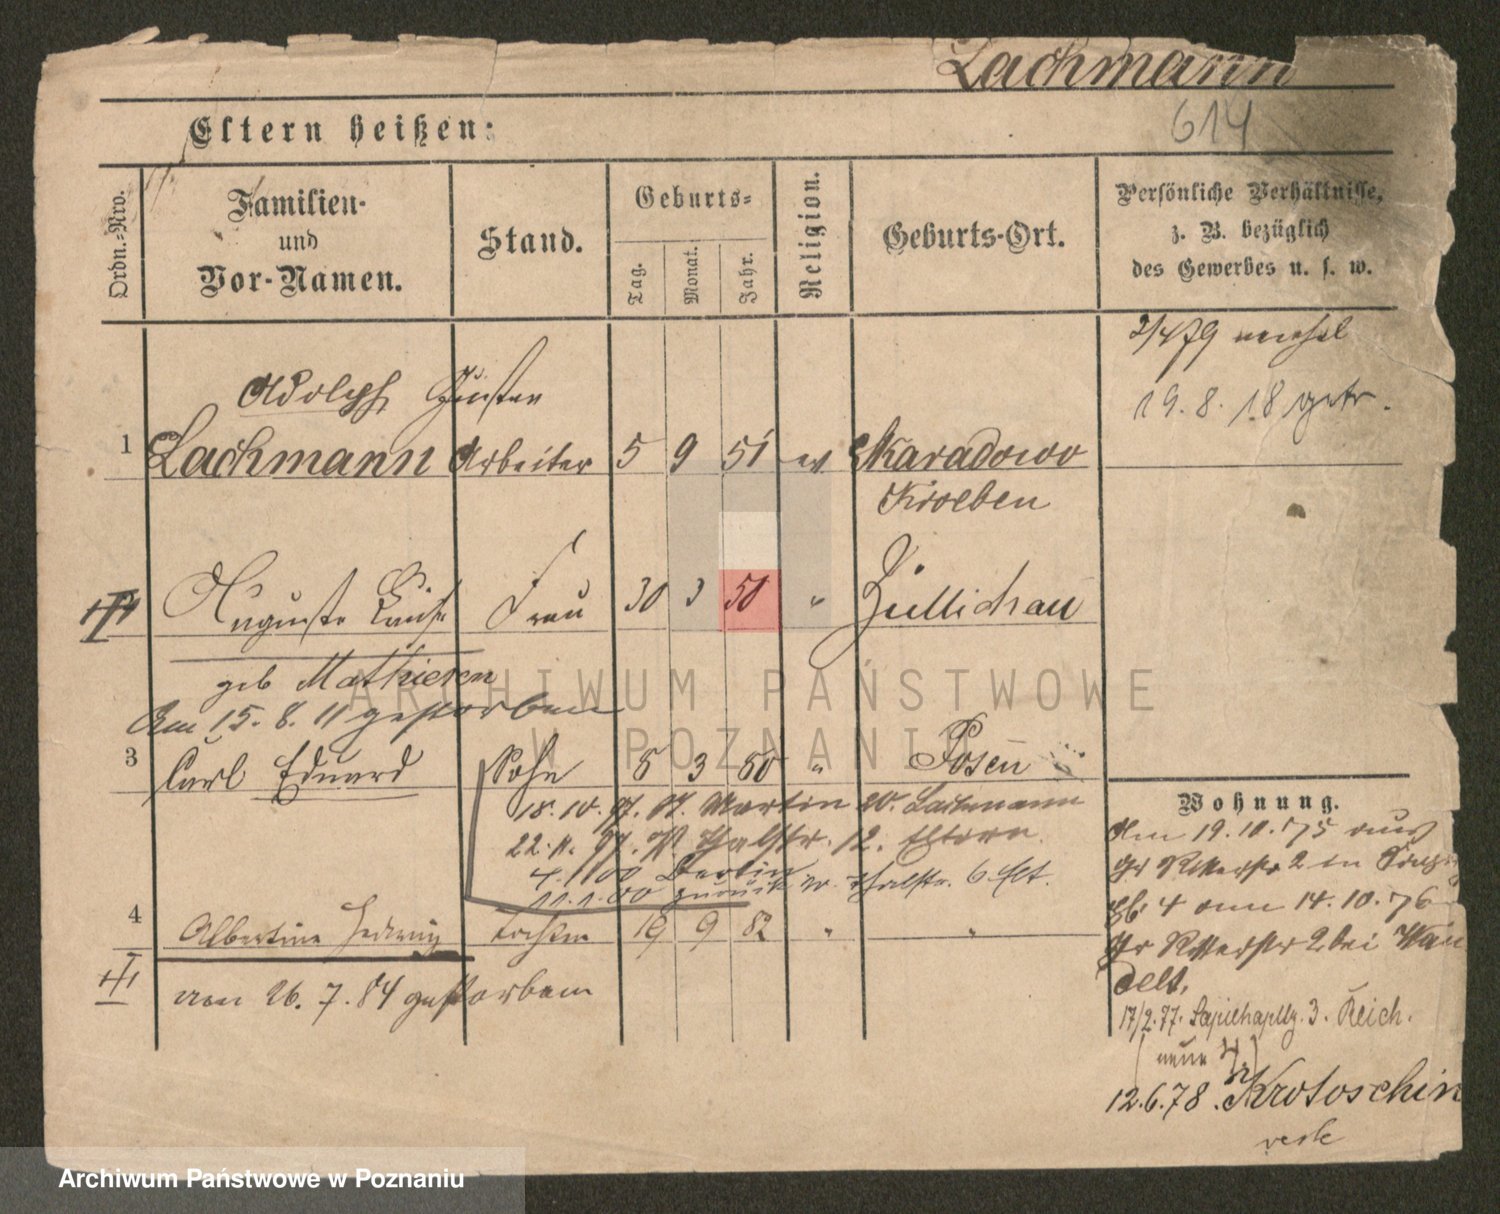 Lachmann
614
Eltern heißen:
Ordn.-Nro.
Familien-
und
Vor-Namen.
Stand.
Geburts-
Tag.
Monat.
Jahr.
Religion.
Geburts-Ort.
Persönliche Verhältnisse,
z. B. bezüglich
des Gewerbes u. s. w.
2/4 79
19. 8. 18 getr.
Adolph Gustav
1 Lachmann Arbeiter 5 9 51 ev Karadowo
Kroeben
Auguste Louise Frau 30 3 50 " Züllichau
geb Mathieren
Am 15. 8. 11 gestorben
3 Carl Eduard Sohn 5 3 80 " Posen
18. 10. 97. Martin 20. Lachmann
22. 11. 97. Halbstr. 12. Eltern
4. 1 00 Berlin
11. 1. 00 zurück v. Thalstr. 6 Elt.
4 Albertine Hedwig Tochter 19 9 82 " "
am 26. 7. 84 gestorben
Wohnung.
Am 19. 10. 75 aus
Gr Ritterstr 2 in
4 am 14. 10. 76
Gr Ritterstr 2 bei Wan
delt.
17/2. 77. Sapiehapltz. 3. Reich.
neue
12. 6. 78. Krotoschin
ARCHIWUM PAŃSTWOWE
W POZNANIU
Archiwum Państwowe w Poznaniu